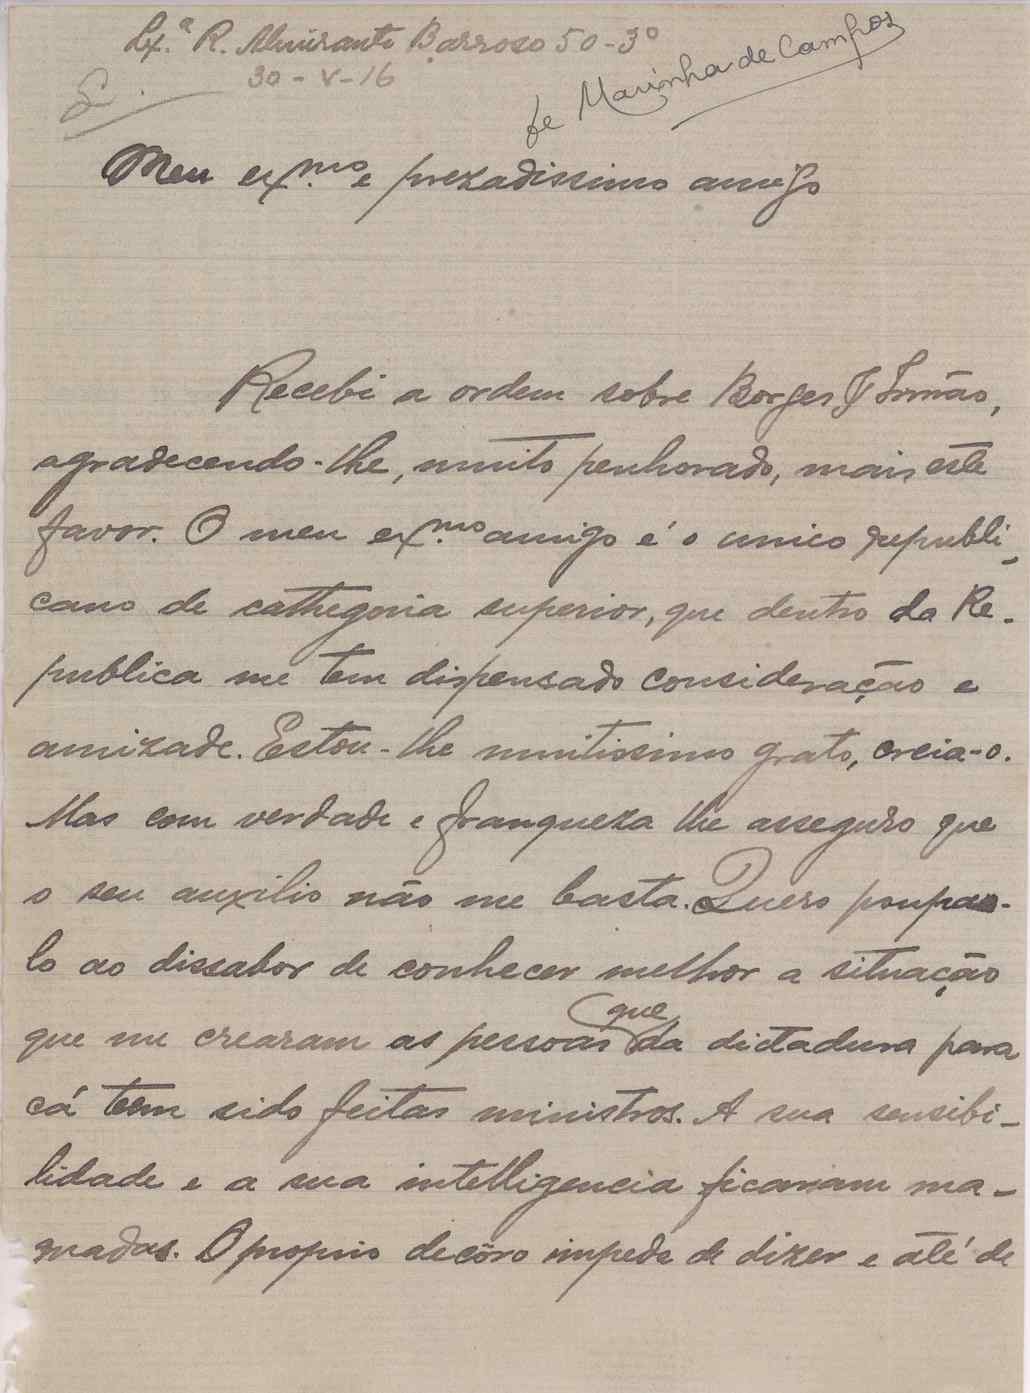 Lx.ª R. Almirante Barroso 50-3º
30-V-16
de Marinha de Campos
Meu ex.mo e prezadissimo amigo
Recebi a ordem sobre Borges & Irmão,
agradecendo-lhe, muito penhorado, mais este
favor. O meu ex.mo amigo é o unico republi-
cano de cathegoria superior, que dentro da Re-
publica me tem dispensado consideração e
amizade. Estou-lhe muitissimo grato, creia-o.
Mas com verdade e franqueza lhe asseguro que
o seu auxilio não me basta. Quero poupa-
lo ao dissabor de conhecer melhor a situação
que me crearam as pessoas que da dictadura para
cá tem sido feitas ministros. A sua sensibi-
lidade e a sua intelligencia ficariam ma-
guadas. O proprio decôro impede de dizer e até de